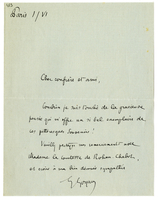 Paris 1/VI
Cher confrère et ami,
Combien je suis touché de la gracieuse
pensée qui m'offre un si bel exemplaire de
ces pittoresques Souvenirs !
Veuillez partager ma reconnaissance avec
Madame la comtesse de Rohan Chabot,
et croire à ma bien dévouée sympathie
G. Goyau